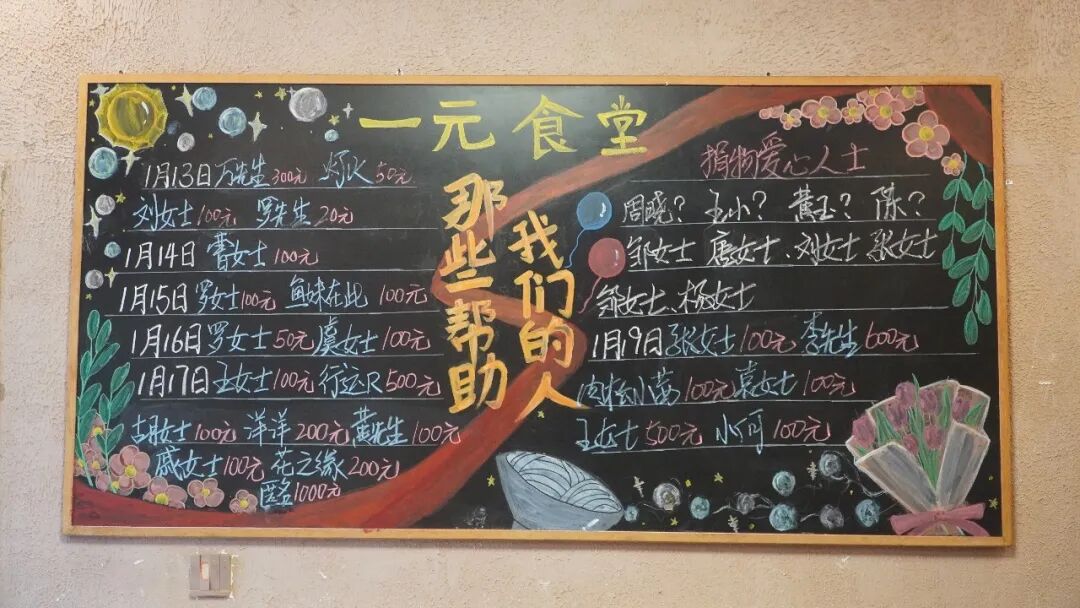 一元食堂
那些帮助
我们的人
1月13日万先生300元 灯火50元
刘女士100元 罗先生20元
1月14日 曹女士100元
1月15日罗女士100元 鱼妹在此 100元
1月16日罗女士50元虞女士100元
1月17日王女士100元行运R500元
古月女士100元 洋洋200元黄先生100元
戚女士100元 花之缘200元
匿名1000元
捐物爱心人士
周晓? 王小? 黄玉? 陈?
邹女士 唐女士、刘女士 张女士
邹女士、杨女士
1月19日张女士100元 李先生600元
肉松小茜100元袁女士100元
王女士500元 小可100元